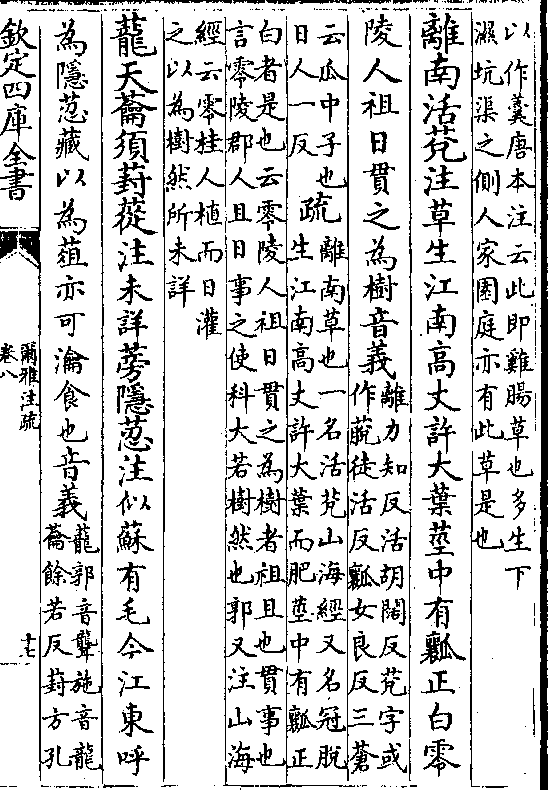 以作羮唐本注云此即雞腸草也多生下
濕坑渠之側人家園庭亦有此草是也
離南活莌注草生江南高丈許大葉莖中有瓤正白零
陵人祖日貫之為樹音義
離力知反活胡闊反莌字或
作䕞徒活反瓤女良反三蒼
云瓜中子也
疏
離南草也一名活莌山海經又名冠脫
日人一反
生江南高丈許大葉而肥莖中有瓤正
白者是也云零陵人祖日貫之為樹者祖且也貫事也
言零陵郡人且日事之使科大若樹然也郭又注山海
經云零桂人植而日灌
之以為樹然所未詳
蘢天蘥須葑蓯注未詳蒡隱荵注似蘇有毛今江東呼
為隱荵藏以為葅亦可瀹食也音義
蘢郭音聾施音龍
蘥餘若反葑方孔
欽定四庫全書
爾雅注疏
卷八
十七